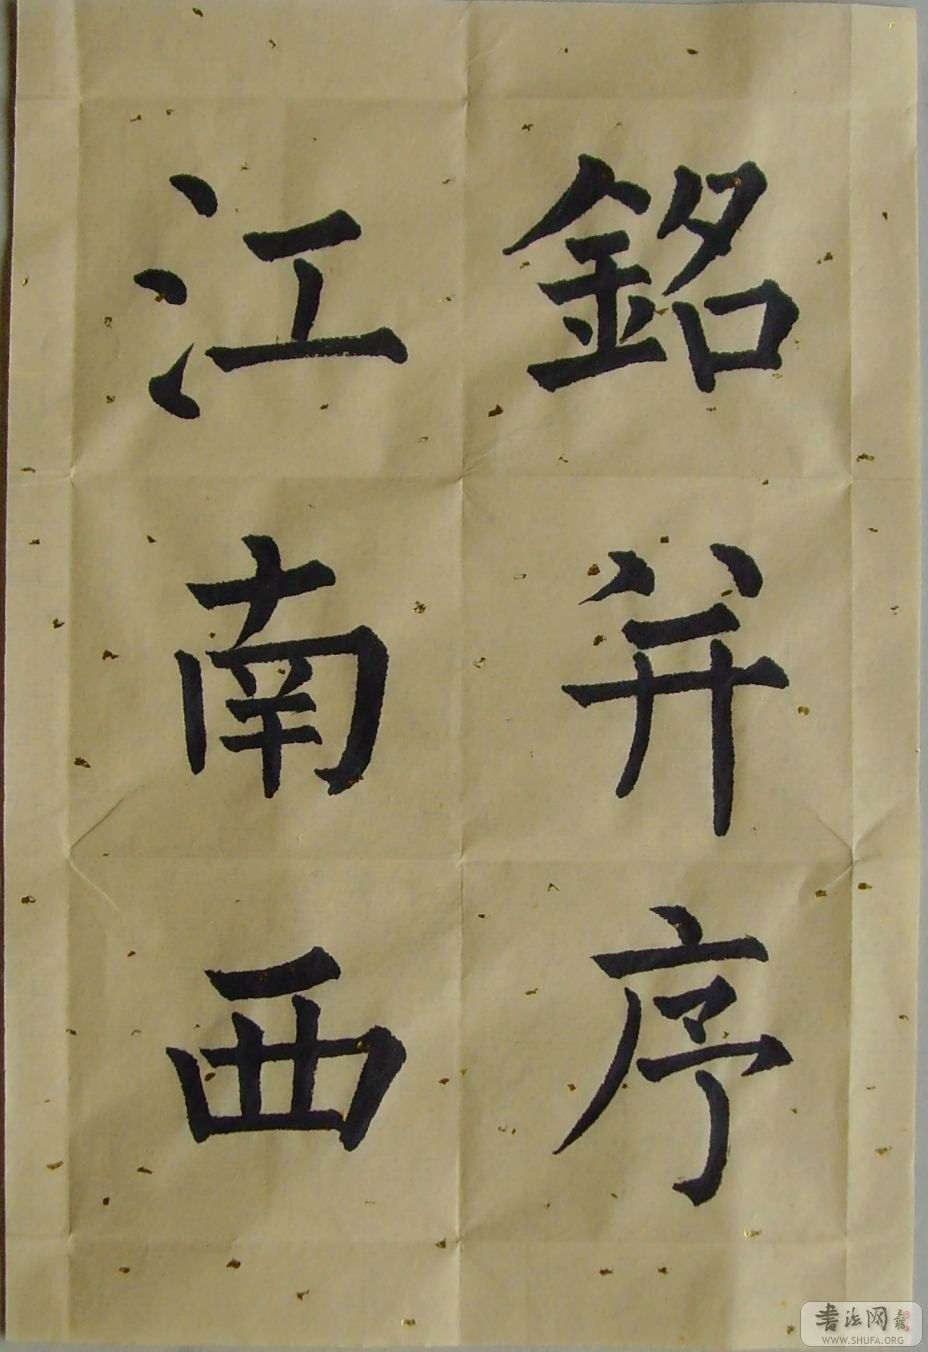 銘并序
江南西
书法网
WWW.SHUFA.ORG